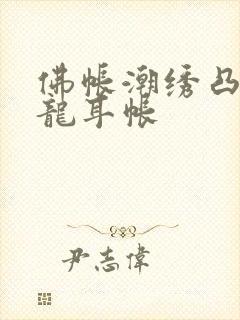 佛帳潮绣凸
龍耳帳
尹志偉